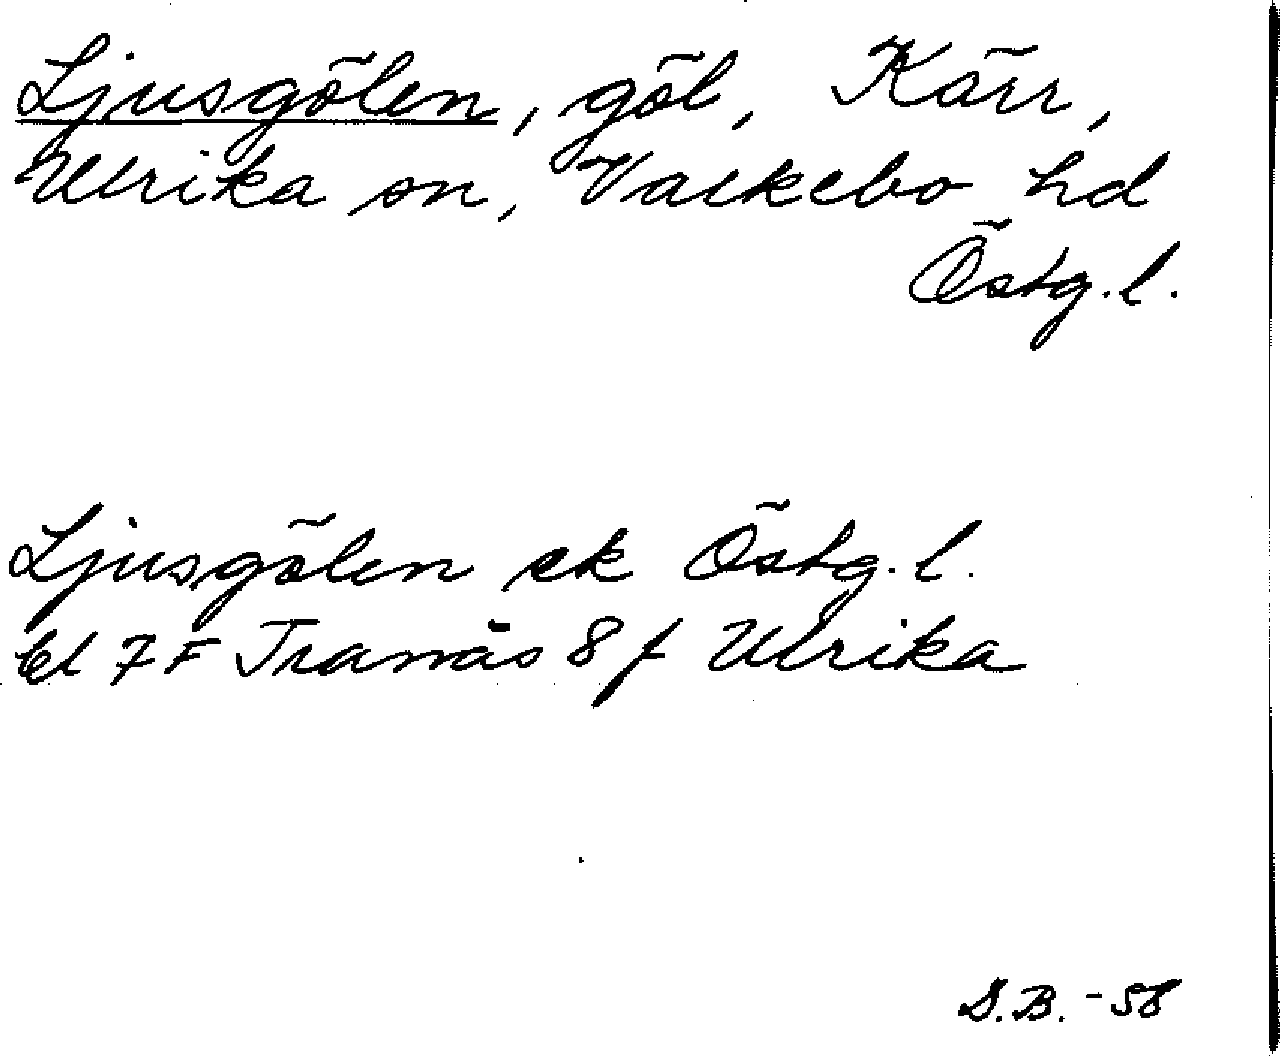 Ljusgölen, göl, Kärr,
Ulrika sn, Valkebo hd
Östg.l.
Ljusgölen ek Östg.l.
bl 7 F Tranås 8 f Ulrika
S.B. -58